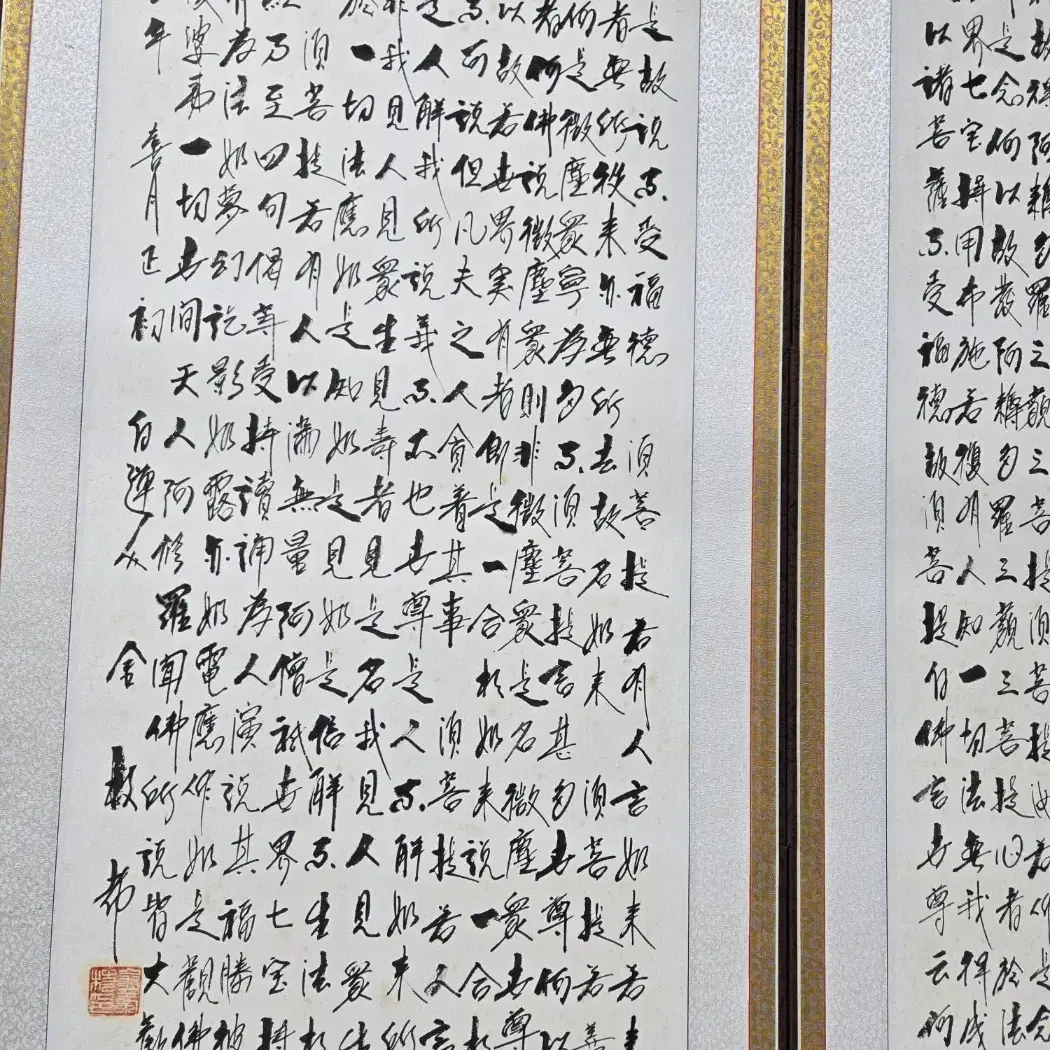 故得阿耨多羅三藐三菩提須菩提汝若作是念
是念何以故發阿耨多羅三藐三菩提心者於法
界七宝持用布施若復有人知一切法無我得成
以諸菩薩不受福德故須菩提白佛言世尊云何
是故說不受福德須菩提若有人言如來若來
者無所從來亦無所去故名如來須菩提若善
何是微塵眾寧為多不須菩提言甚多世尊何以
者何佛說微塵眾則非微塵眾是名微塵眾世尊
以故若世界实有者即是一合相如來說一合相
不可說但凡夫之人貪着其事須菩提若人言
是人解我所說義不不也世尊是人不解如來所
非我見人見眾生見壽者見是名我見人見眾生
於一切法應如是知如是見如是信解不生法相
須菩提若有人以滿無量阿僧祇世界七宝持
乃至四句偈等受持讀誦為人演說其福勝彼
為法如夢幻泡影如露亦如電應作如是觀佛
婆夷一切世間天人阿修羅聞佛所說皆大歡
年喜月正初